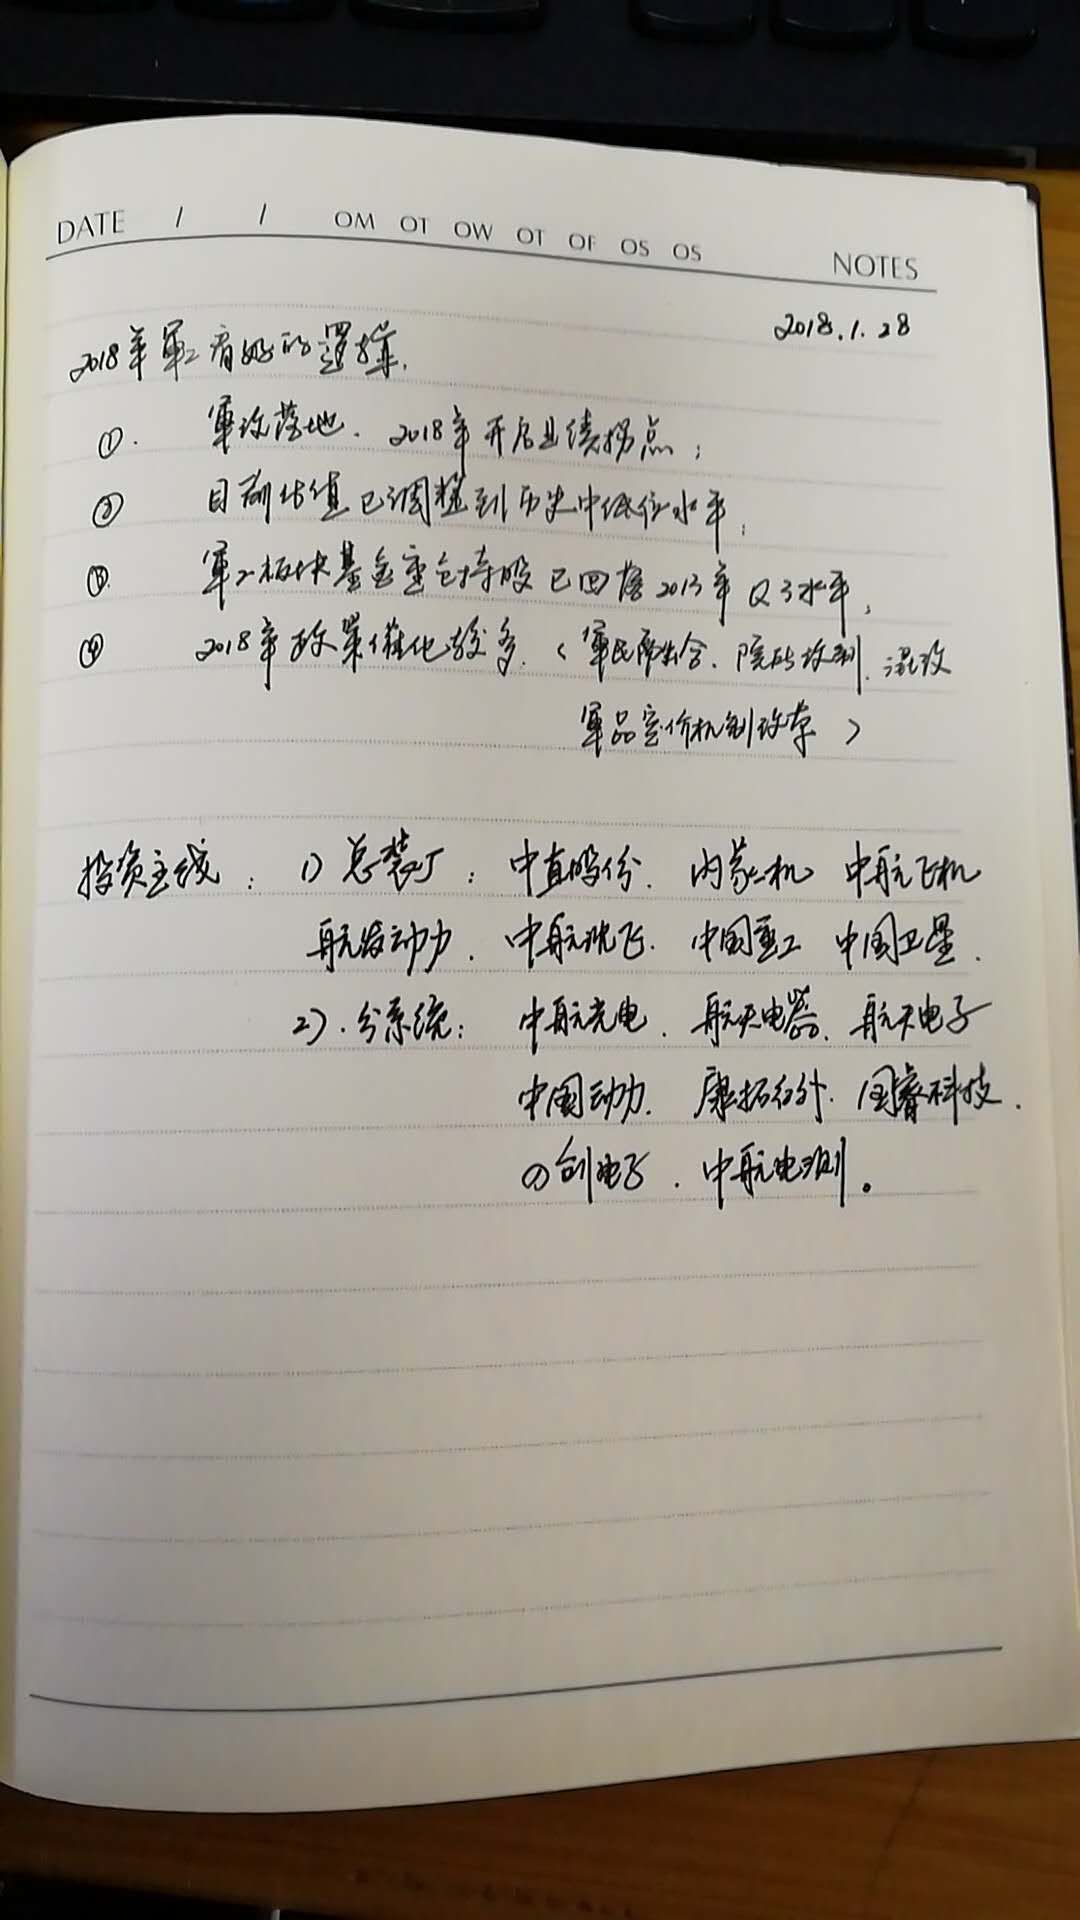 DATE / / OM OT OW OT OF OS OS NOTES
2018.1.28
2018年軍工看好的逻辑.
①. 軍改落地. 2018年开启业绩拐点;
② 目前估值已调整到历史中低位水平;
③. 軍工板块基金重仓持股已回落2013年Q3水平;
④ 2018年政策催化较多.(軍民融合.院所改制.混改
軍品定价机制改革)
投资主线: 1)总装厂: 中直股份. 内蒙一机 中航飞机
航发动力. 中航沈飞. 中国重工 中国卫星.
2).分系统: 中航光电. 航天电器. 航天电子
中国动力. 康拓红外. 国睿科技.
四创电子. 中航电测。